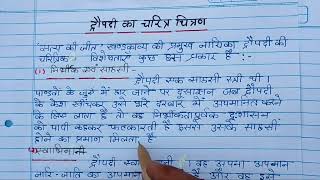 द्रौपदी का चरित्र चित्रण
'सत्य की जीत' खण्डकाव्य की प्रमुख नायिका द्रौपदी की
चारित्रिक विशेषताएं कुछ इस प्रकार हैं :-
(1) निर्भीक एवं साहसी -
द्रौपदी एक साहसी स्त्री थी।
पाण्डवों के जुए में हार जाने पर दुःशासन जब द्रौपदी
के केश खींचकर उसे भरे दरबार में अपमानित करने
के लिए लाता है तो वह निर्भीकतापूर्वक दुःशासन
को पापी कहकर फटकारती है इससे उसके साहसी
होने का प्रमाण मिलता है
स्वाभिमानी
द्रौपदी वह अपमा अपमान
नारि-जाति का अपमान